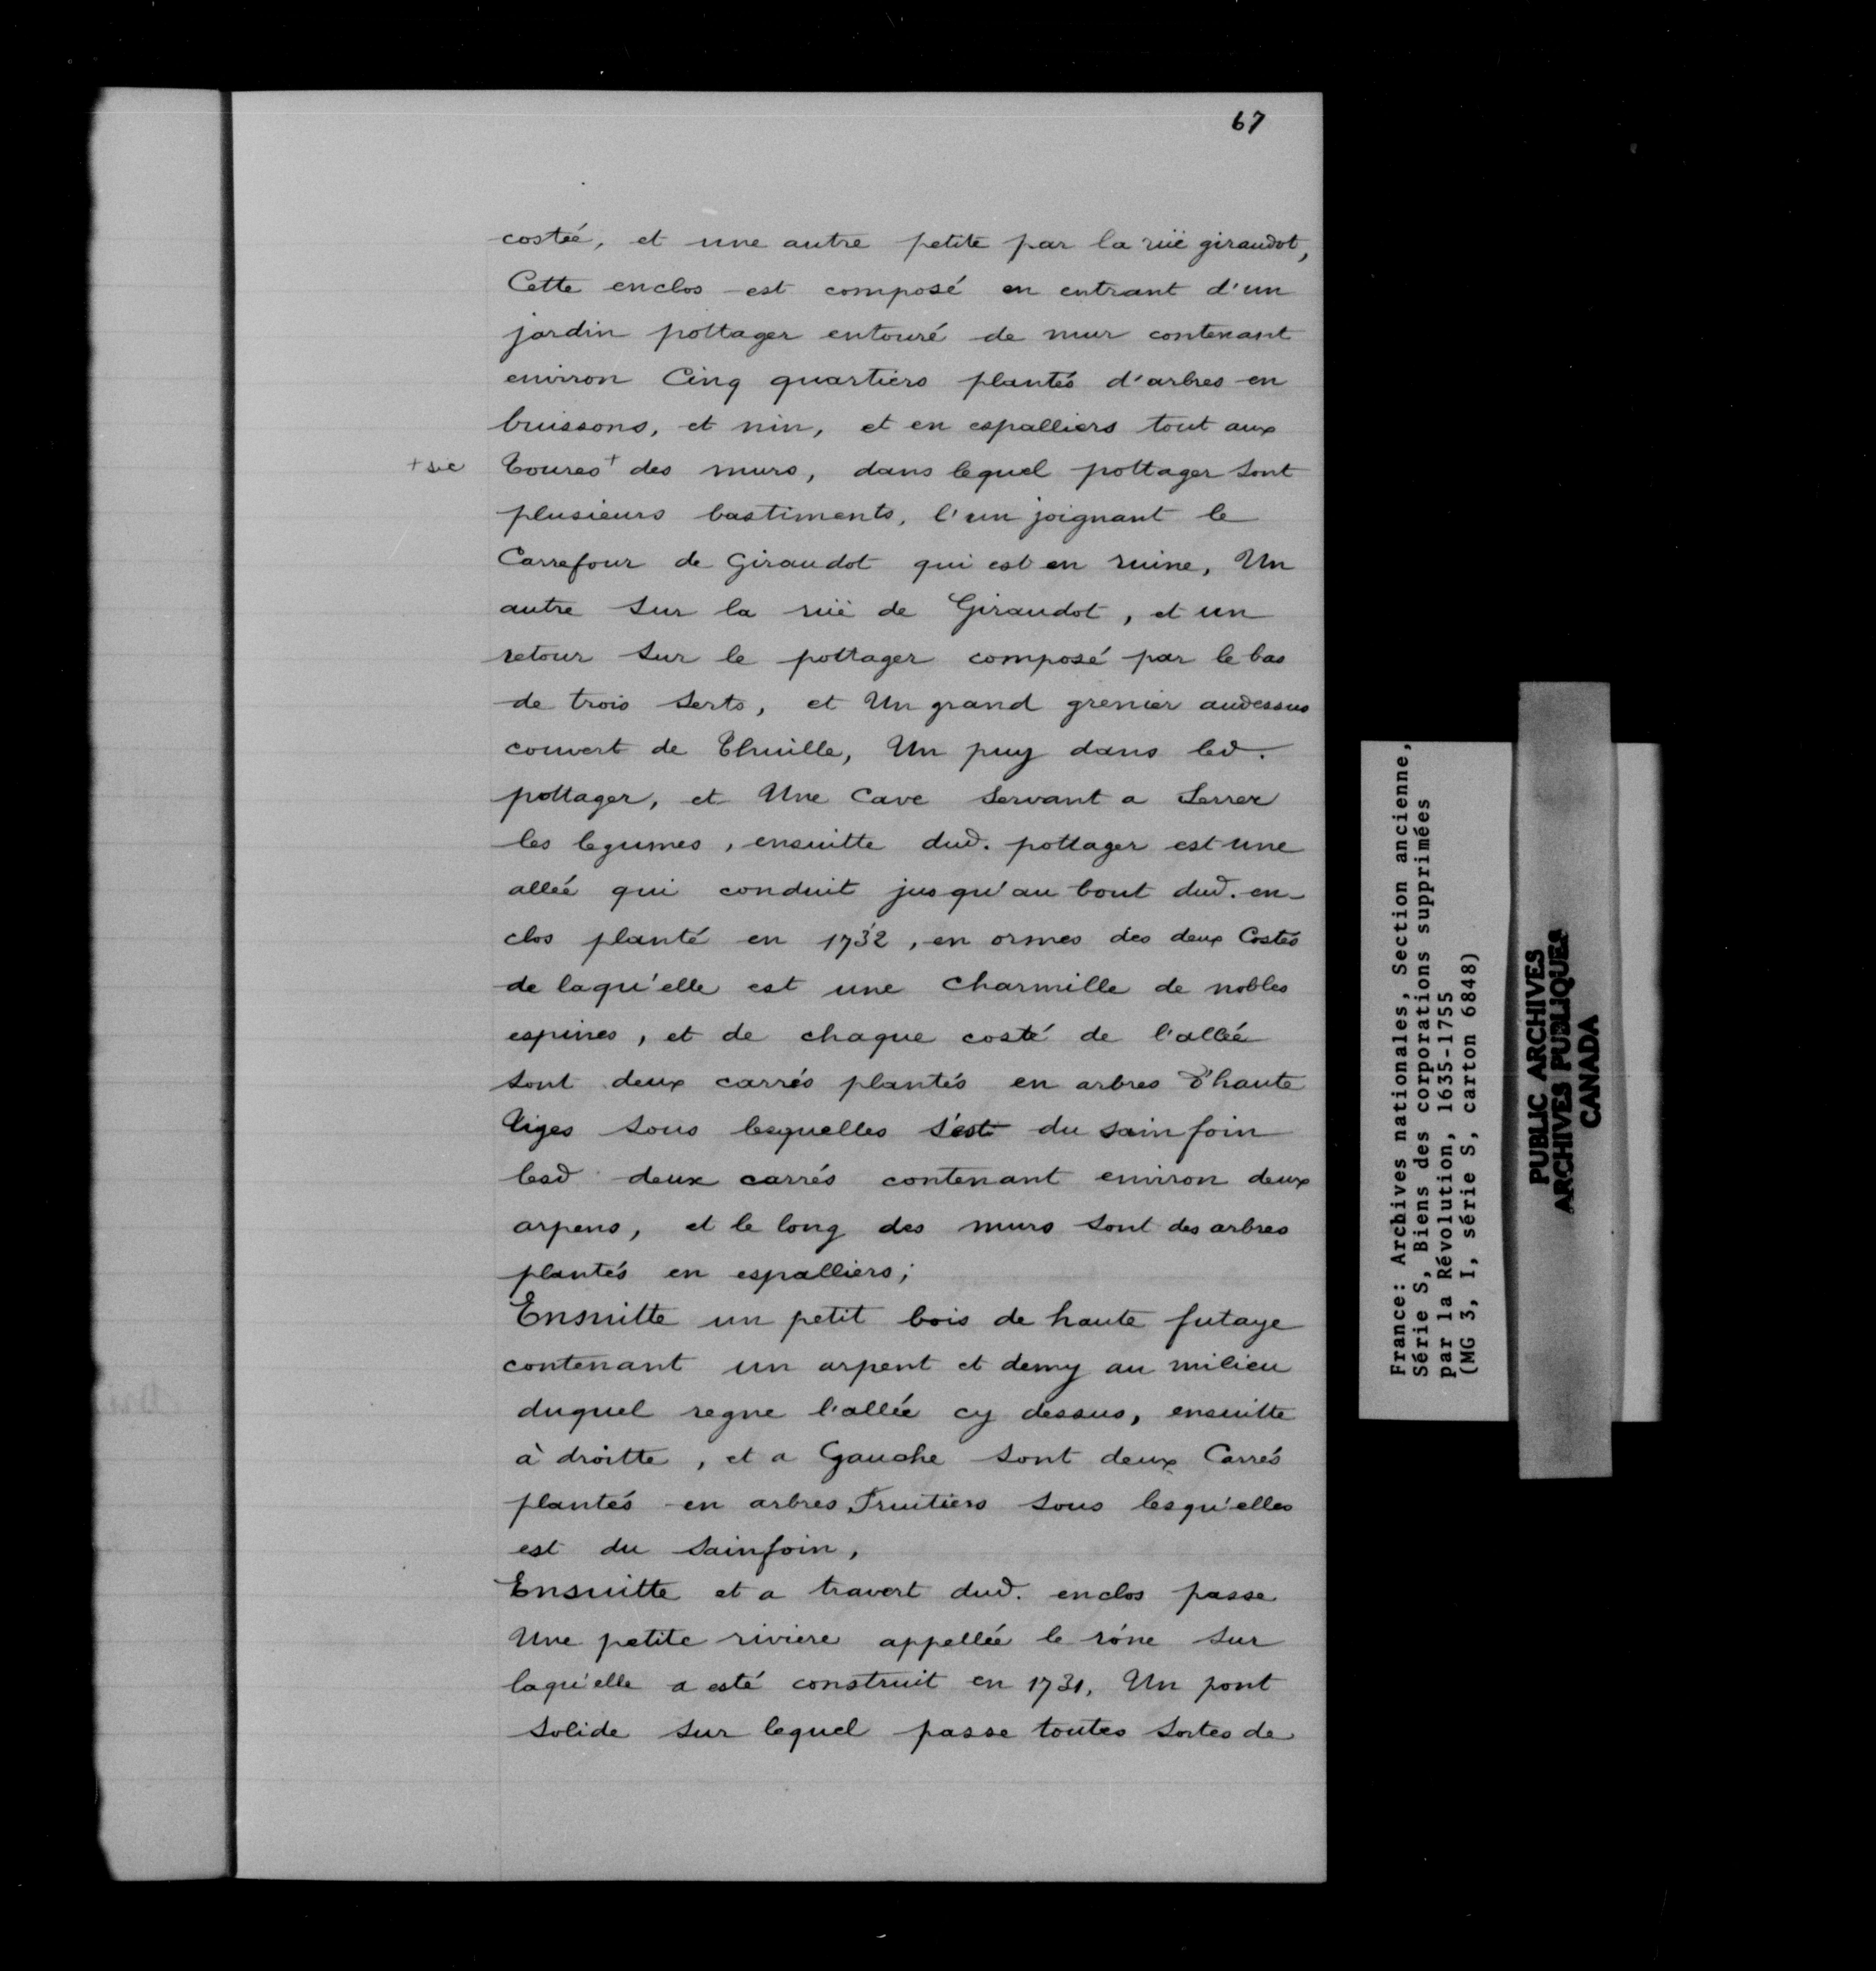 67
costeé, et une autre petite par la rüe giraudot,
Cette enclos est composé en entrant d'un
jardin pottager entouré de mur contenant
environ Cinq quartiers plantés d'arbres en
buissons, et nin, et en espalliers tout aux
+ sic Toures+ des murs, dans lequel pottager sont
plusieurs bastiments, l'un joignant le
Carrefour de Giraudot qui est en ruine, Un
autre sur la rüe de Giraudot, et un
retour sur le pottager composé par le bas
de trois serts, et Un grand grenier audessus
couvert de Thuille, Un puy dans led.
pottager, et Une Cave servant a Serrer
les legumes, ensuitte dud. pottager est une
alleé qui conduit jusqu'au bout dud. en-
clos planté en 1732, en ormes des deux Costés
de laqu'elle est une Charmille de nobles
espines, et de chaque costé de l'allée
sont deux carrés plantés en arbres d'haute
Tiges sous lesquelles s'est du sain foin
lesd deux carrés contenant environ deux
arpens, et le long des murs sont des arbres
plantés en espalliers;
Ensuitte un petit bois de haute futaye
contenant un arpent et demy au milieu
duquel regne l'allée cy dessus, ensuitte
à droitte, et a Gauche sont deux Carrés
plantés en arbres Fruitiers sous lesqu'elles
est du sainfoin,
Ensuitte et a travert dud. enclos passe
Une petite riviere appellée le róne sur
laqu'elle a esté construit en 1731, Un pont
solide sur lequel passe toutes sortes de
France: Archives nationales, Section ancienne,
Série S, Biens des corporations supprimées
par la Révolution, 1635-1755
(MG 3, I, série S, carton 6848)
PUBLIC ARCHIVES
ARCHIVES PUBLIQUES
CANADA